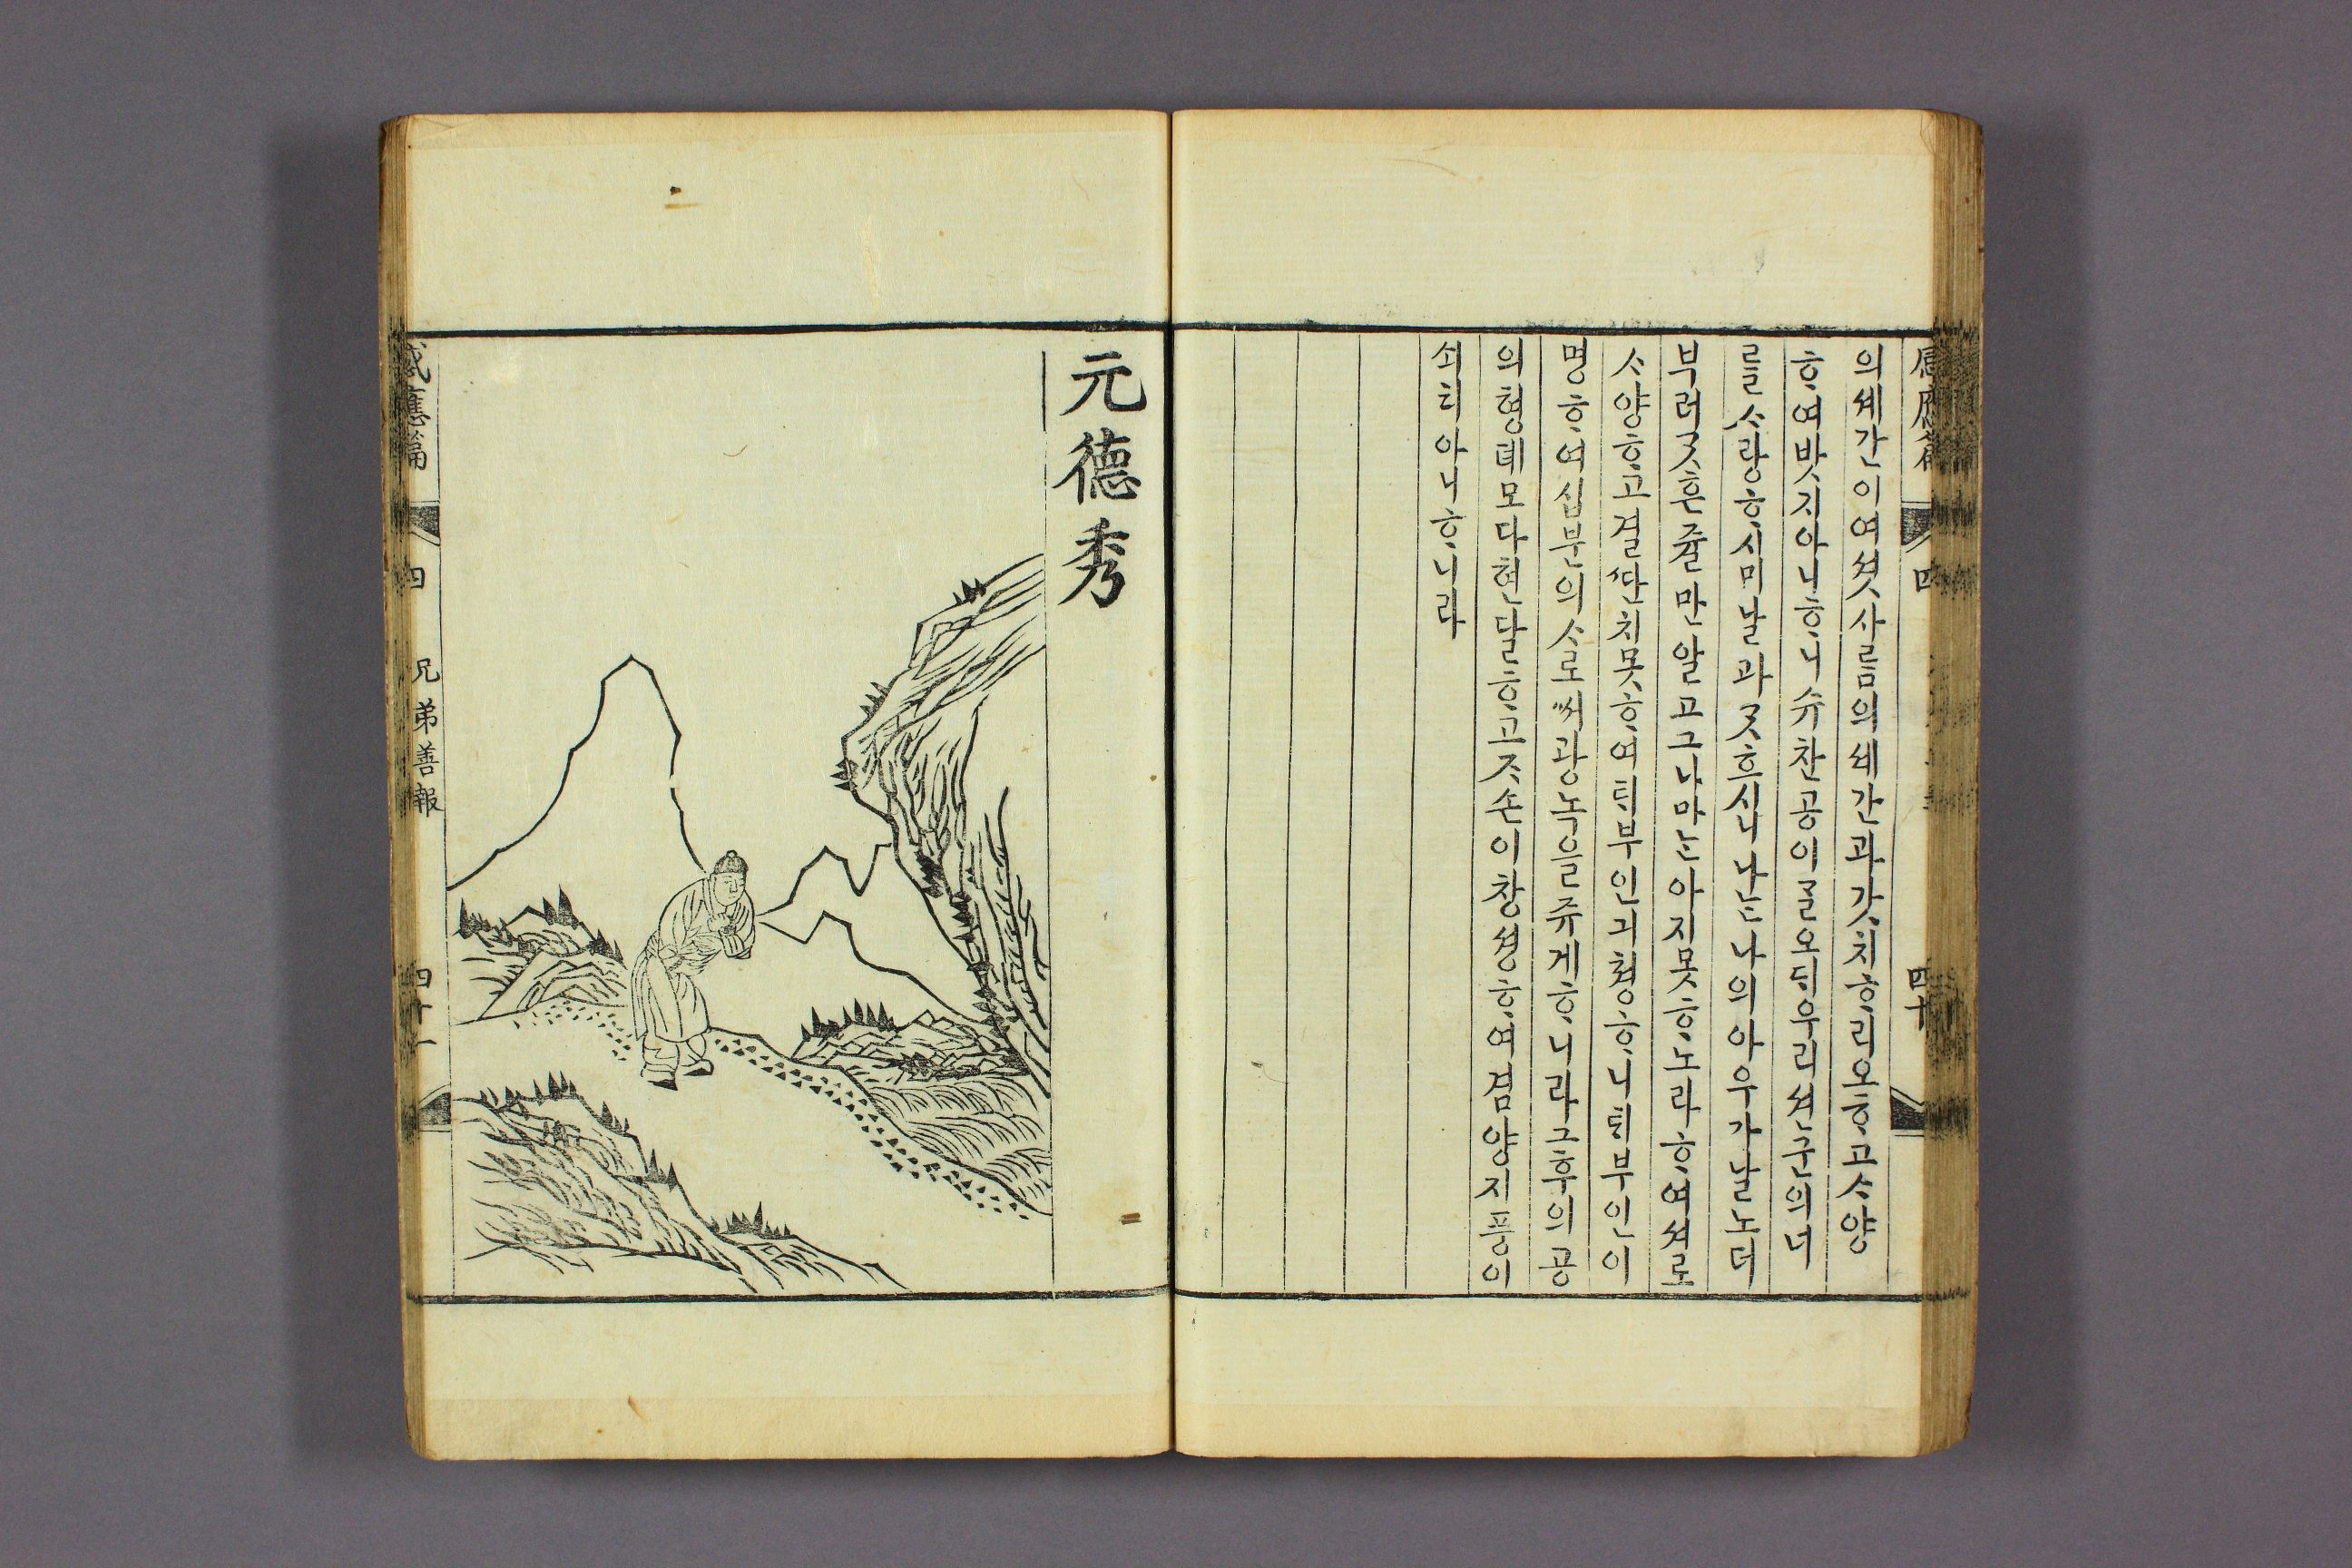 感應篇 四 四十
의셰간이여셧사름의셰간과갓치ᄒᆞ리오ᄒᆞ고ᄉᆞ양
ᄒᆞ여밧지아니ᄒᆞ니슈찬공이ᄀᆞᆯ오ᄃᆡ우리션군의녀
를ᄉᆞ랑ᄒᆞ시미날과ᄀᆞᆺ흐시니나ᄂᆞᆫ나의아우가날노더
부러ᄀᆞᆺ흔쥴만알고그나마ᄂᆞᆫ아지못ᄒᆞ노라ᄒᆞ여셔로
ᄉᆞ양ᄒᆞ고결ᄯᅡᆫ치못ᄒᆞ여ᄃᆡ부인긔쳥ᄒᆞ니ᄃᆡ부인이
명ᄒᆞ여십분의ᄉᆞ로ᄡᅥ광녹을쥬게ᄒᆞ니라그후의공
의형뎨모다현달ᄒᆞ고ᄌᆞ손이창셩ᄒᆞ여겸양지풍이
쇠치아니ᄒᆞ니라
元德秀
感應篇 四 兄弟善報 四十一